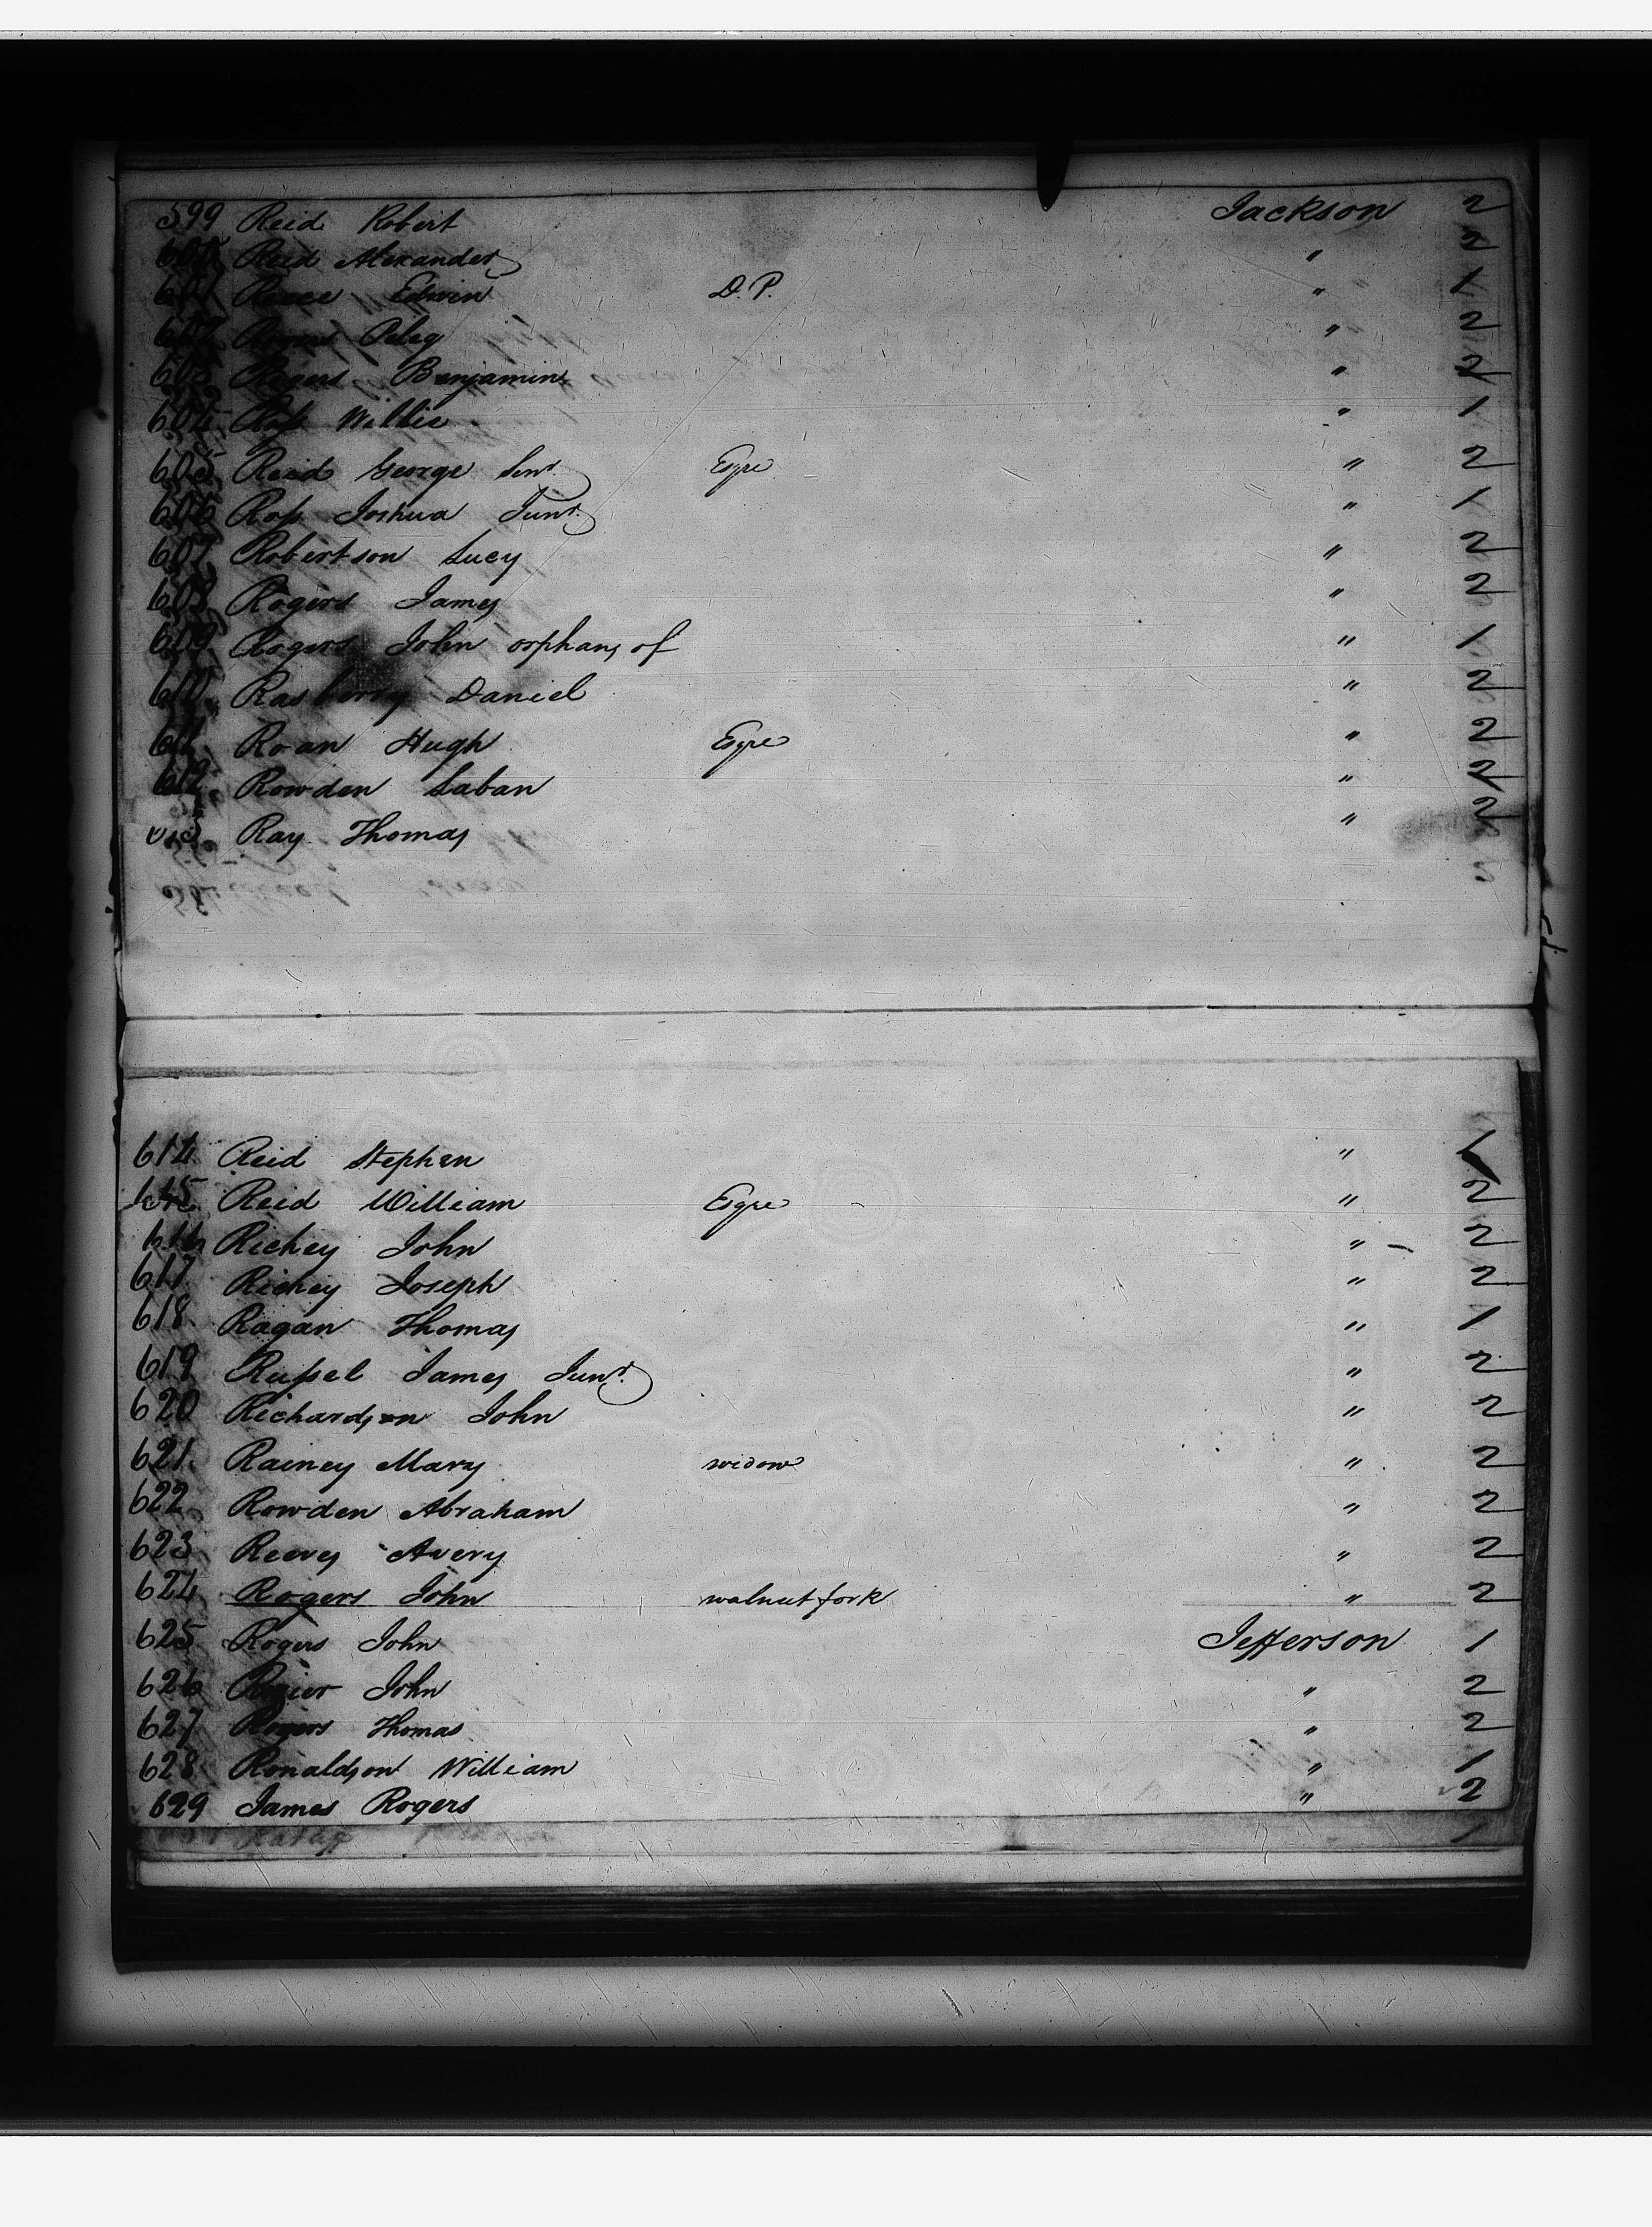 599 Reid Robert Jackson 2
600 Reid Alexander " 2
601 Reece Edwin D. P. " 1
602 Rogers Peleg " 2
603 Rogers Benjamin " 2
604 Ross Willie " 1
605 Reid George Senr. Esqre " 2
606 Ross Joshua Junr. " 1
607 Robertson Lucy " 2
608 Rogers James " 2
609 Rogers John orphans of " 1
610 Rasberry Daniel " 2
611 Roan Hugh Esqre " 2
612 Rowden Laban " 2
613. Ray Thomas " 2
614 Reid Stephen " 1
615 Reid William Esqre " 2
616 Richey John " 2
617 Richey Joseph " 2
618. Ragan Thomas " 1
619 Russel James Junr. " 2
620 Richardson John " 2
621. Rainey Mary widow " 2
622 Rowden Abraham " 2
623 Reeves Avery " 2
624 Rogers John walnut fork " 2
625 Rogers John Jefferson 1
626 John " 2
627 Rogers Thomas " 2
628 Ronaldson William " 1
629 James Rogers " 2